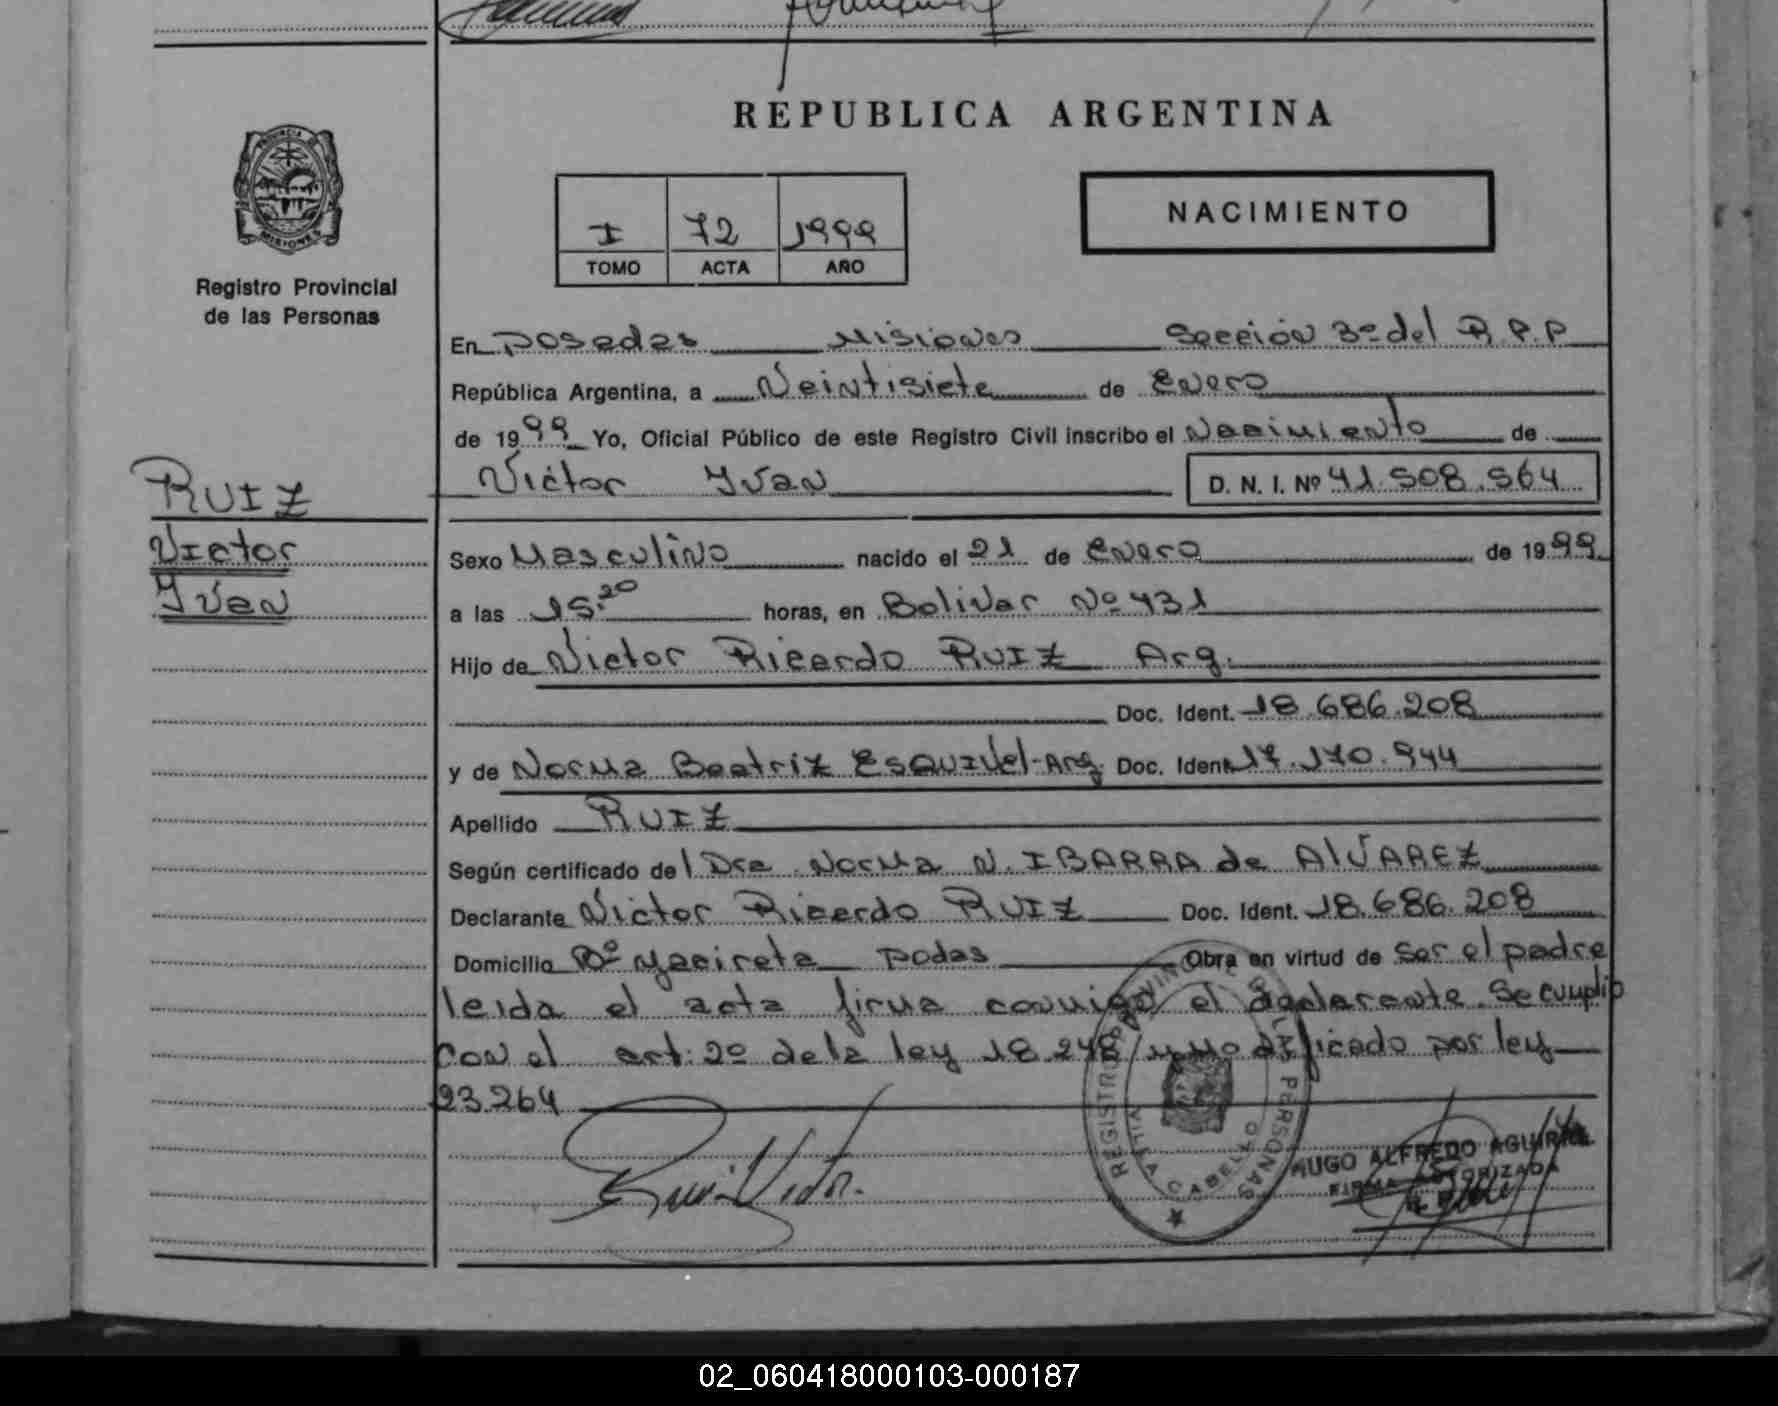 REPUBLICA ARGENTINA
PROVINCIA
MISIONES
Registro Provincial
de las Personas
I 72 1999
TOMO ACTA AÑO
NACIMIENTO
En Posadas Misiones Sección 3º del R.P.P
República Argentina, a Veintisiete de Enero
de 1999 Yo, Oficial Público de este Registro Civil inscribo el Nacimiento de
Victor Yvan D. N. I. Nº 41.508.564
RUIZ
Victor
Yvan
Sexo Masculino nacido el 21 de Enero de 1999
a las 15:20 horas, en Bolivar Nº 431
Hijo de Victor Ricardo RUIZ Arg.
Doc. Ident. 18.686.208
y de Norma Beatriz ESQUIVel-Arg. Doc. Ident. 17.170.944
Apellido RUIZ
Según certificado del Dra Norma N. IBARRA de AlVAREZ
Declarante Victor Ricardo RUIZ Doc. Ident. 18.686.208
Domicilio Bº Yacireta podas Obra en virtud de ser el padre
leida el acta firma conmigo el declarante. Se cumplio
con el art: 2º de la ley 18.248 y modificado por ley
23.264
Ruiz Victor.
REGISTRO PROVINCIAL DE LAS PERSONAS
VILLA CABELLO
HUGO ALFREDO AGUIRRE
FIRMA AUTORIZADA
02_060418000103-000187